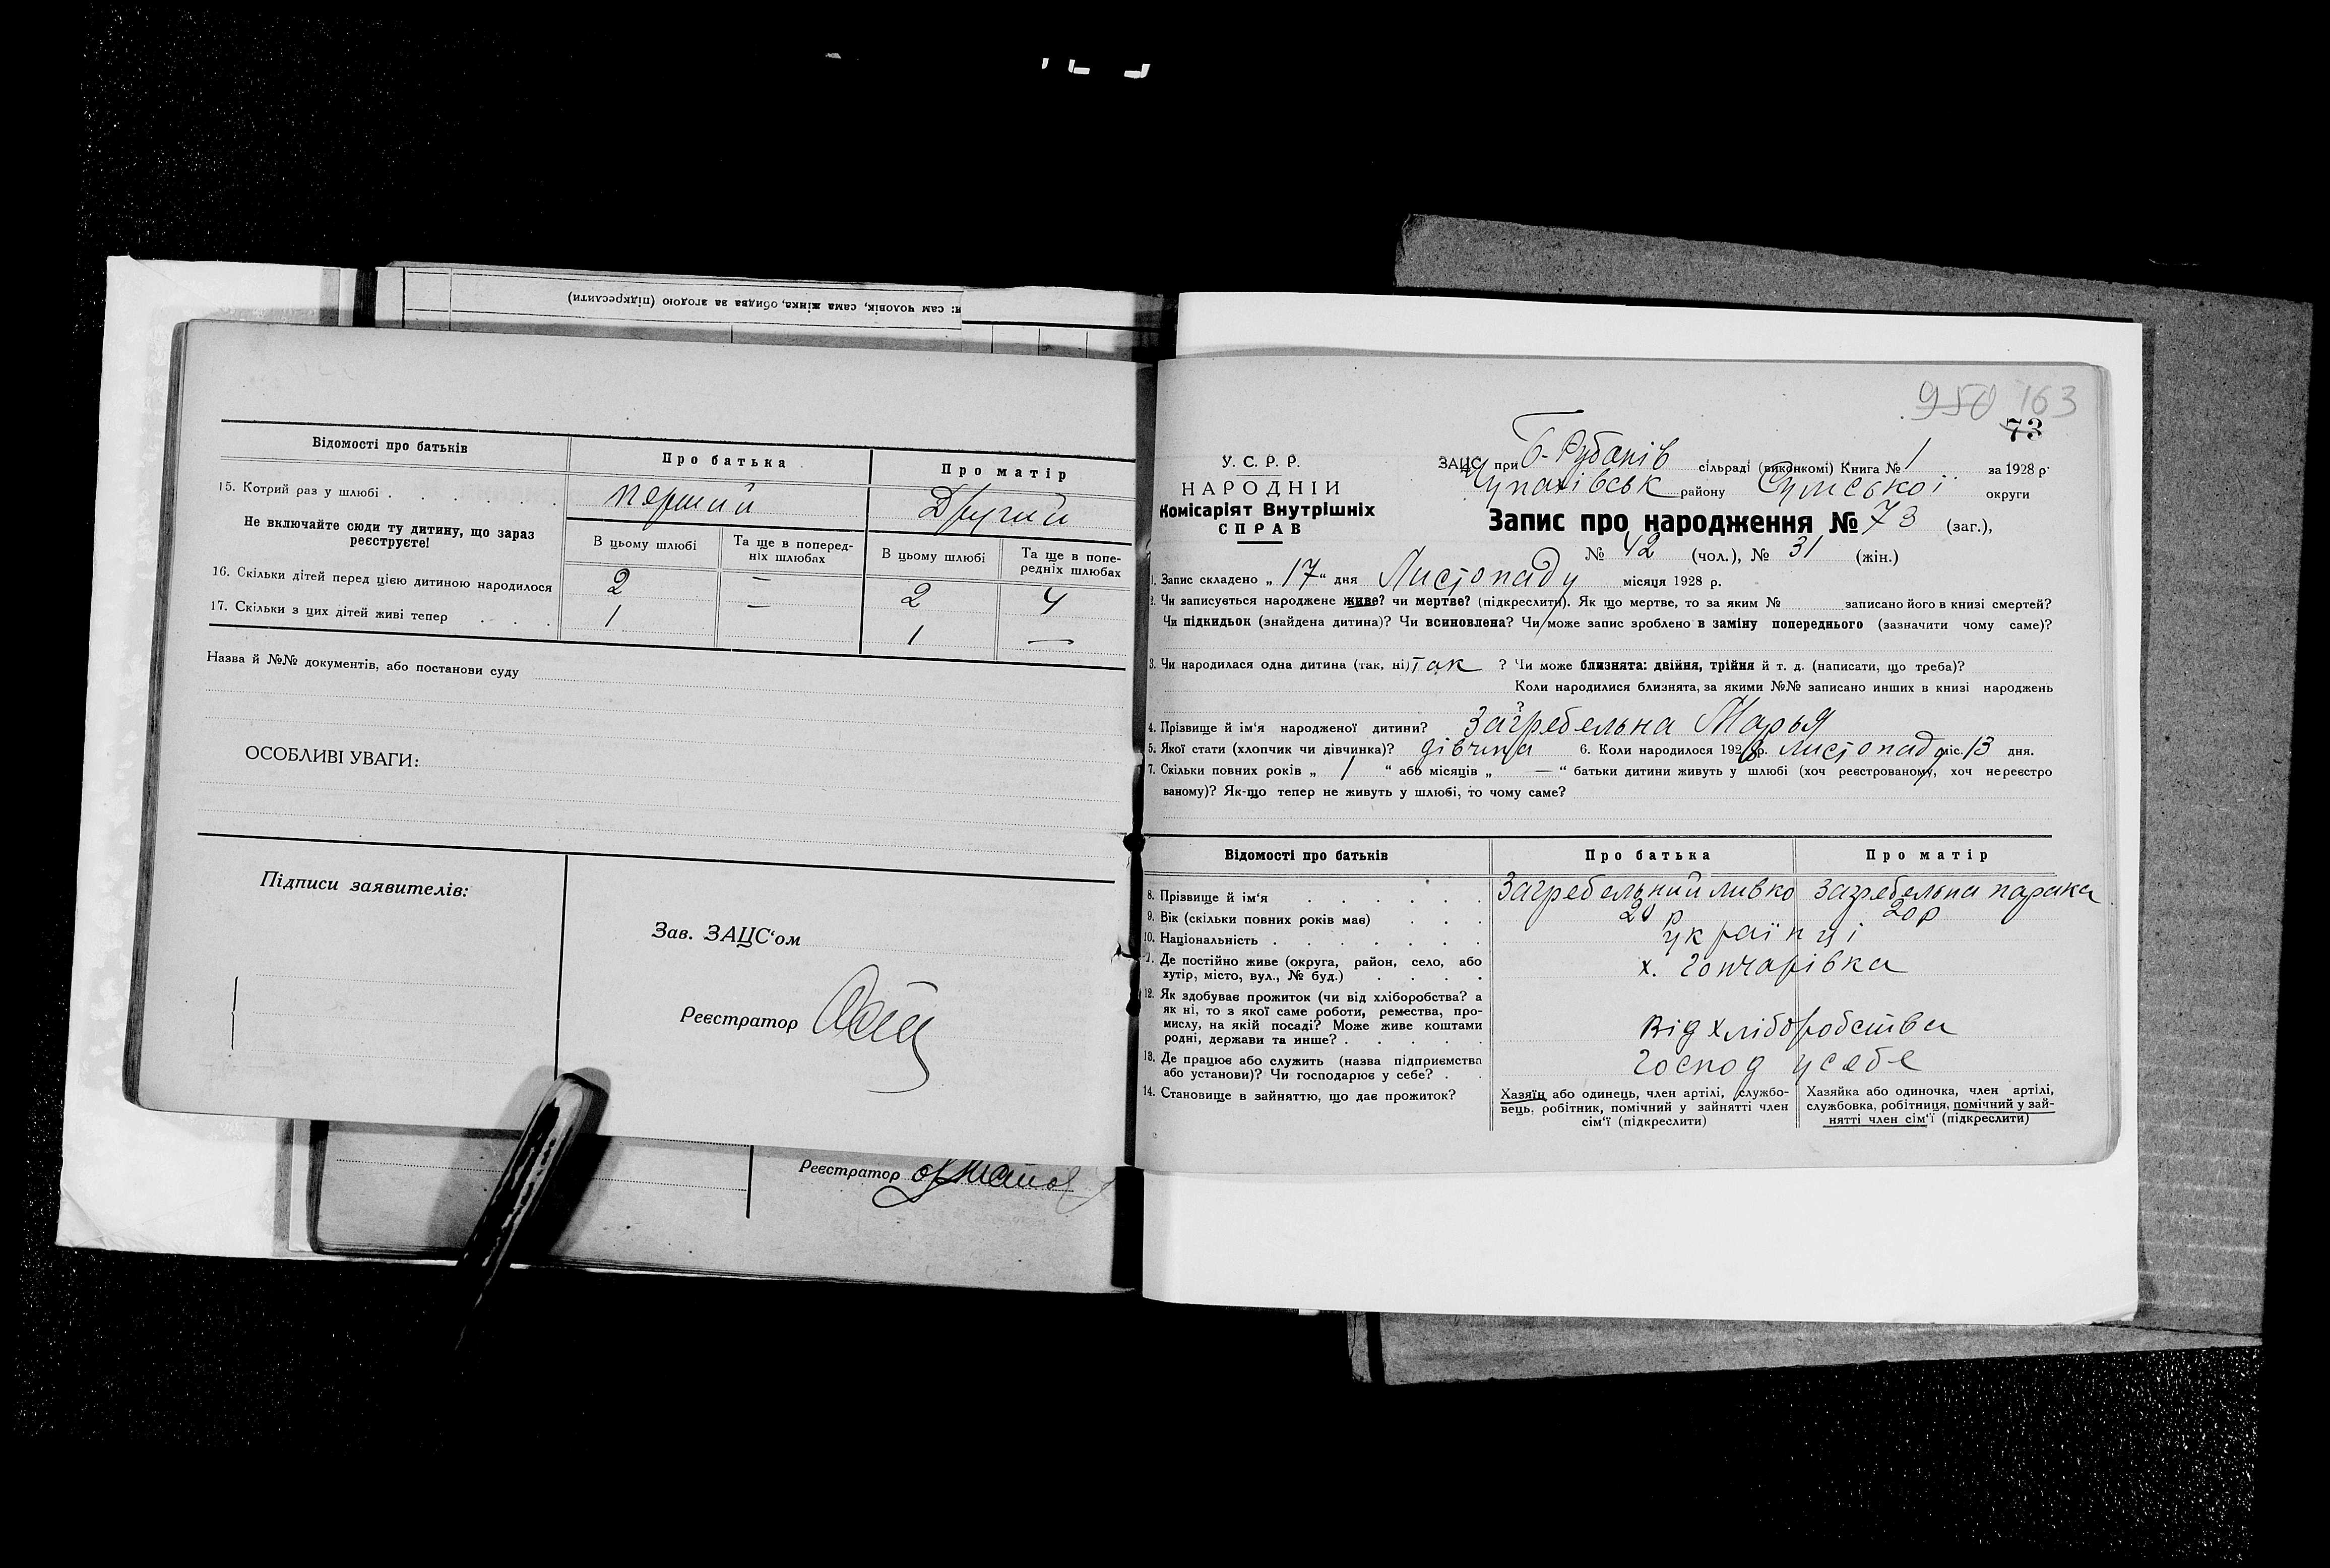 и: сам чоловік, сама жінка, обидва за згодою (підкреслити)
Відомості про батьків
Про батька
Про матір
15. Котрий раз у шлюбі
перший
Другий
Не включайте сюди ту дитину, що зараз реєструєте!
В цьому шлюбі
Та ще в попередніх шлюбах
В цьому шлюбі
Та ще в попередніх шлюбах
16. Скільки дітей перед цією дитиною народилося
2 — 2 4
17. Скільки з цих дітей живі тепер
1 — 1 —
Назва й №№ документів, або постанови суду
ОСОБЛИВІ УВАГИ:
Підписи заявителів:
Зав. ЗАЦС‘ом
Реєстратор
Реєстратор
950 163
73
У. С. Р. Р.
НАРОДНІЙ
Комісаріят Внутрішніх
СПРАВ
ЗАЦС при Б-Рубанів сільраді (виконкомі) Книга № 1 за 1928 р.
Чупахівськ району Сумської округи
Запис про народження № 73 (заг.),
№ 42 (чол.), № 31 (жін.)
1. Запис складено „ 17 “ дня Листопаду місяця 1928 р.
2. Чи записується народжене живе? чи мертве? (підкреслити). Як що мертве, то за яким № записано його в книзі смертей?
Чи підкидьок (знайдена дитина)? Чи всиновлена? Чи може запис зроблено в заміну попереднього (зазначити чому саме)?
3. Чи народилася одна дитина (так, ні) так ? Чи може близнята: двійня, трійня й т. д. (написати, що треба)?
Коли народилися близнята, за якими №№ записано инших в книзі народжень
?
4. Прізвище й ім‘я народженої дитини? Загребельна Марья
5. Якої стати (хлопчик чи дівчинка)? дівчина 6. Коли народилося 1928 р. листопаду міс. 13 дня.
7. Скільки повних років „ 1 “ або місяців „ — “ батьки дитини живуть у шлюбі (хоч реєстрованому, хоч нереєстро
ваному)? Як-що тепер не живуть у шлюбі, то чому саме?
Відомості про батьків
Про батька
Про матір
8. Прізвище й ім‘я
Загребельний Ливко
Загребельна парака
9. Вік (скільки повних років має)
20 р
20 р
10. Національність
українці
11. Де постійно живе (округа, район, село, або
хутір, місто, вул., № буд.)
х. Гончарівка
12. Як здобуває прожиток (чи від хліборобства? а
як ні, то з якої саме роботи, ремества, про-
мислу, на якій посаді? Може живе коштами
родні, держави та инше?
Від хліборобства
13. Де працює або служить (назва підприємства
або установи)? Чи господарює у себе?
Господ у себе
14. Становище в зайняттю, що дає прожиток?
Хазяїн або одинець, член артілі, службо-
вець, робітник, помічний у зайнятті член
сім‘ї (підкреслити)
Хазяйка або одиночка, член артілі,
службовка, робітниця, помічний у зай-
нятті член сім‘ї (підкреслити)